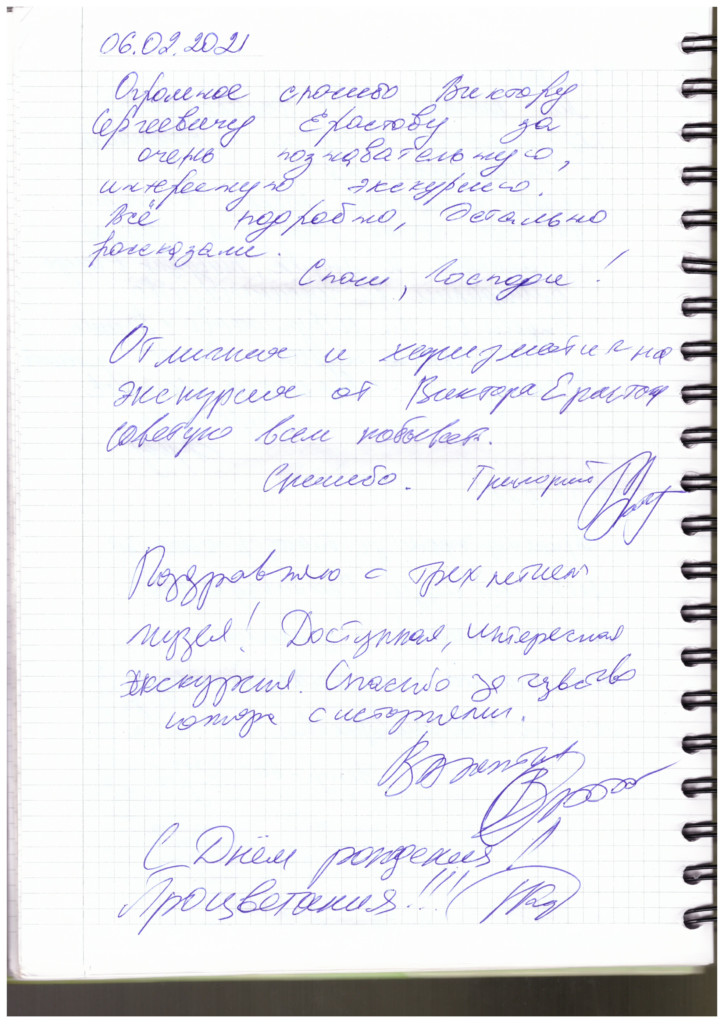 06.02.2021
Огромное спасибо Виктору
Сергеевичу Ерастову за
очень познавательную,
интересную экскурсию.
Всё подробно, детально
рассказали.
Спаси, Господи!
Отличная и харизматична
экскурсия от Виктора Ерастова
советую всем побывать.
Спасибо. Григорий
Поздравляю с трех летием
музея! Доступная, интересная
экскурсия. Спасибо за чувство
юмора с историями.
Валентин
С Днём рождения!
Процветания!!!